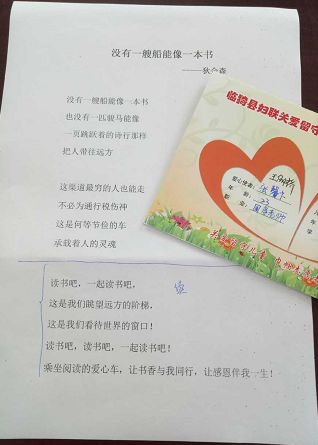 没有一艘船能像一本书
——狄金森
没有一艘船能像一本书
也没有一匹骏马能像
一页跳跃着的诗行那样
把人带往远方
这渠道最穷的人也能走
不必为通行税伤神
这是何等节俭的车
承载着人的灵魂
读书吧，一起读书吧，
这是我们眺望远方的阶梯，
这是我们看待世界的窗口！
读书吧，读书吧，一起读书吧！
乘坐阅读的爱心车，让书香与我同行，让感恩伴我一生！
临猗县妇联关爱留守
爱心使者：
年龄：23
职业：